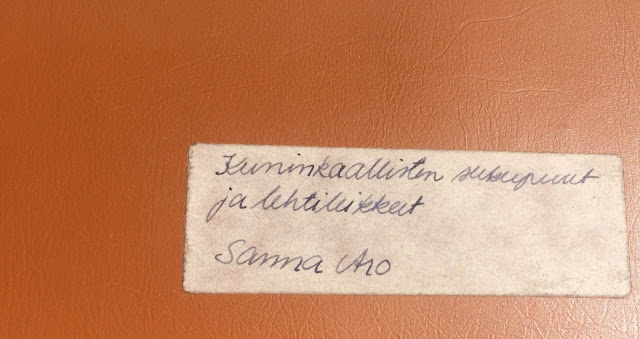 Kuninkaallisten sukupuut
ja lehtileikkeet
Sanna Aro